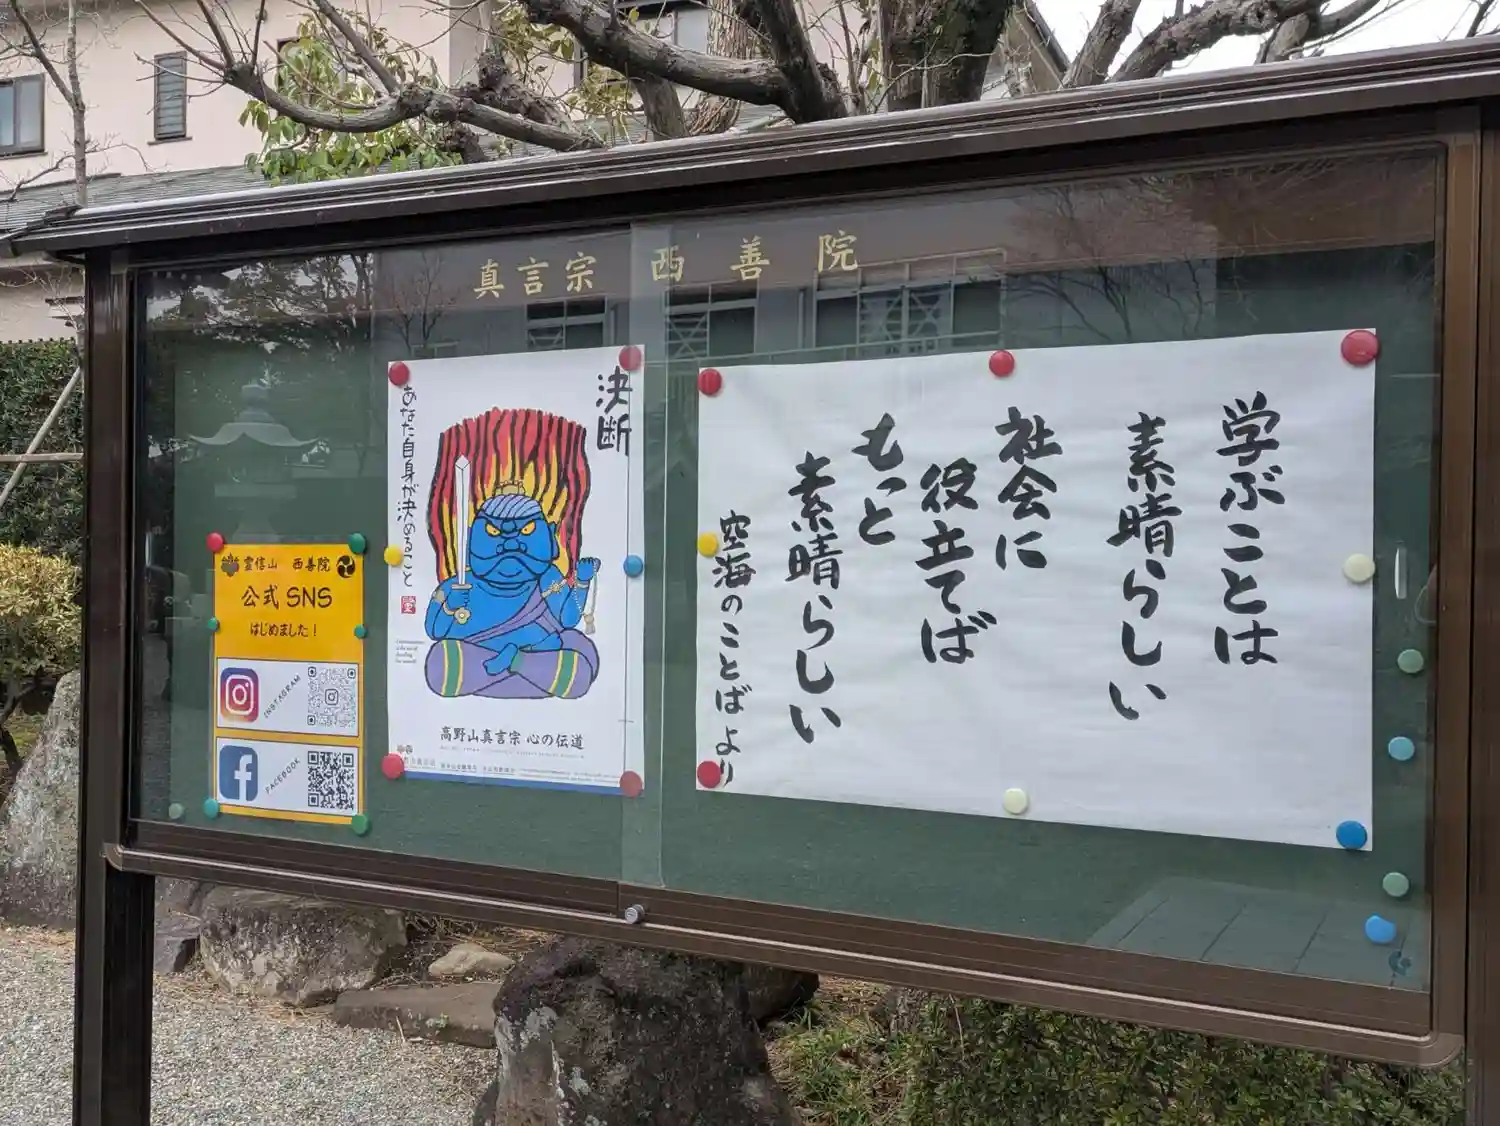 真言宗 西善院
学ぶことは
素晴らしい
社会に
役立てば
もっと
素晴らしい
空海のことばより
決断
あなた自身が決めること
高野山真言宗 心の伝道
霊信山 西善院
公式 SNS
はじめました!
INSTAGRAM
FACEBOOK